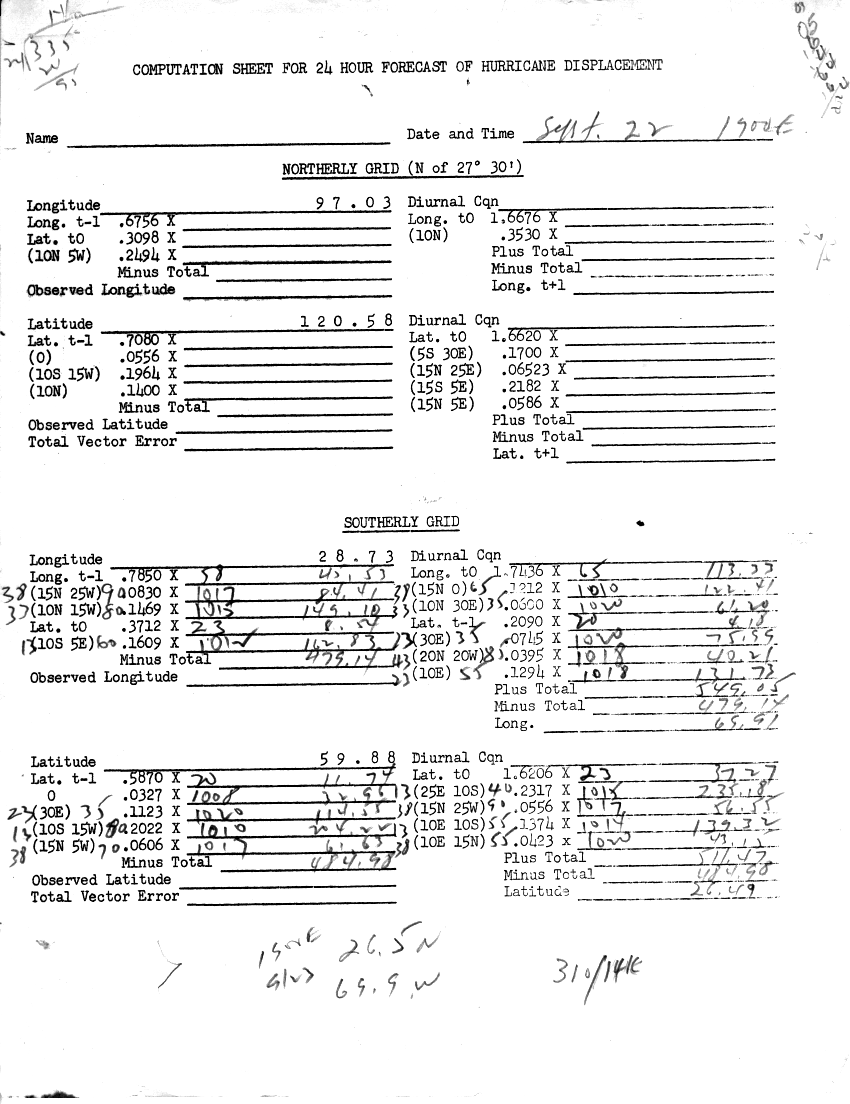 COMPUTATION SHEET FOR 24 HOUR FORECAST OF HURRICANE DISPLACEMENT
Name
Date and Time Sept. 22 1900E
NORTHERLY GRID (N of 27° 30')
Longitude 97.03
Long. t-1 .6756 X
Lat. t0 .3098 X
(10N 5W) .2494 X
Minus Total
Observed Longitude
Diurnal Cqn
Long. t0 1.6676 X
(10N) .3530 X
Plus Total
Minus Total
Long. t+1
Latitude 120.58
Lat. t-1 .7080 X
(0) .0556 X
(10S 15W) .1964 X
(10N) .1400 X
Minus Total
Observed Latitude
Total Vector Error
Diurnal Cqn
Lat. t0 1.6620 X
(5S 30E) .1700 X
(15N 25E) .06523 X
(15S 5E) .2182 X
(15N 5E) .0586 X
Plus Total
Minus Total
Lat. t+1
SOUTHERLY GRID
Longitude 28.73
Long. t-1 .7850 X 58 45.53
38 (15N 25W) 90 .0830 X 1017 84.41
33 (10N 15W) 80 .1469 X 1015 149.10
Lat. t0 .3712 X 23 8.54
13 (10S 5E) 60 .1609 X 1012 162.83
Minus Total 479.14
Observed Longitude
Diurnal Cqn
Long. t0 1.7436 X 65 113.33
38 (15N 0) 65 .1212 X 1010 122.41
33 (10N 30E) 35 .0600 X 1020 61.20
Lat. t-1 .2090 X 20 4.18
23 (30E) 35 .0745 X 1020 75.99
43 (20N 20W) 85 .0395 X 1018 40.21
23 (10E) 55 .1294 X 1018 131.73
Plus Total 549.05
Minus Total 479.14
Long. 69.91
Latitude 59.88
Lat. t-1 .5870 X 20 11.74
0 .0327 X 1008 32.96
23 (30E) 35 .1123 X 1020 114.55
(10S 15W) 80 .2022 X 1010 204.22
38 (15N 5W) 70 .0606 X 1017 61.63
Minus Total 484.98
Observed Latitude
Total Vector Error
Diurnal Cqn
Lat. t0 1.6206 X 23 37.27
13 (25E 10S) 40 .2317 X 1015 235.18
38 (15N 25W) 90 .0556 X 1017 56.55
13 (10E 10S) 55 .1374 X 1014 139.32
38 (10E 15N) 55 .0423 X 1020 43.15
Plus Total 511.47
Minus Total 484.98
Latitude 26.49
1900E 26.5 N
69.9 W
310/14K